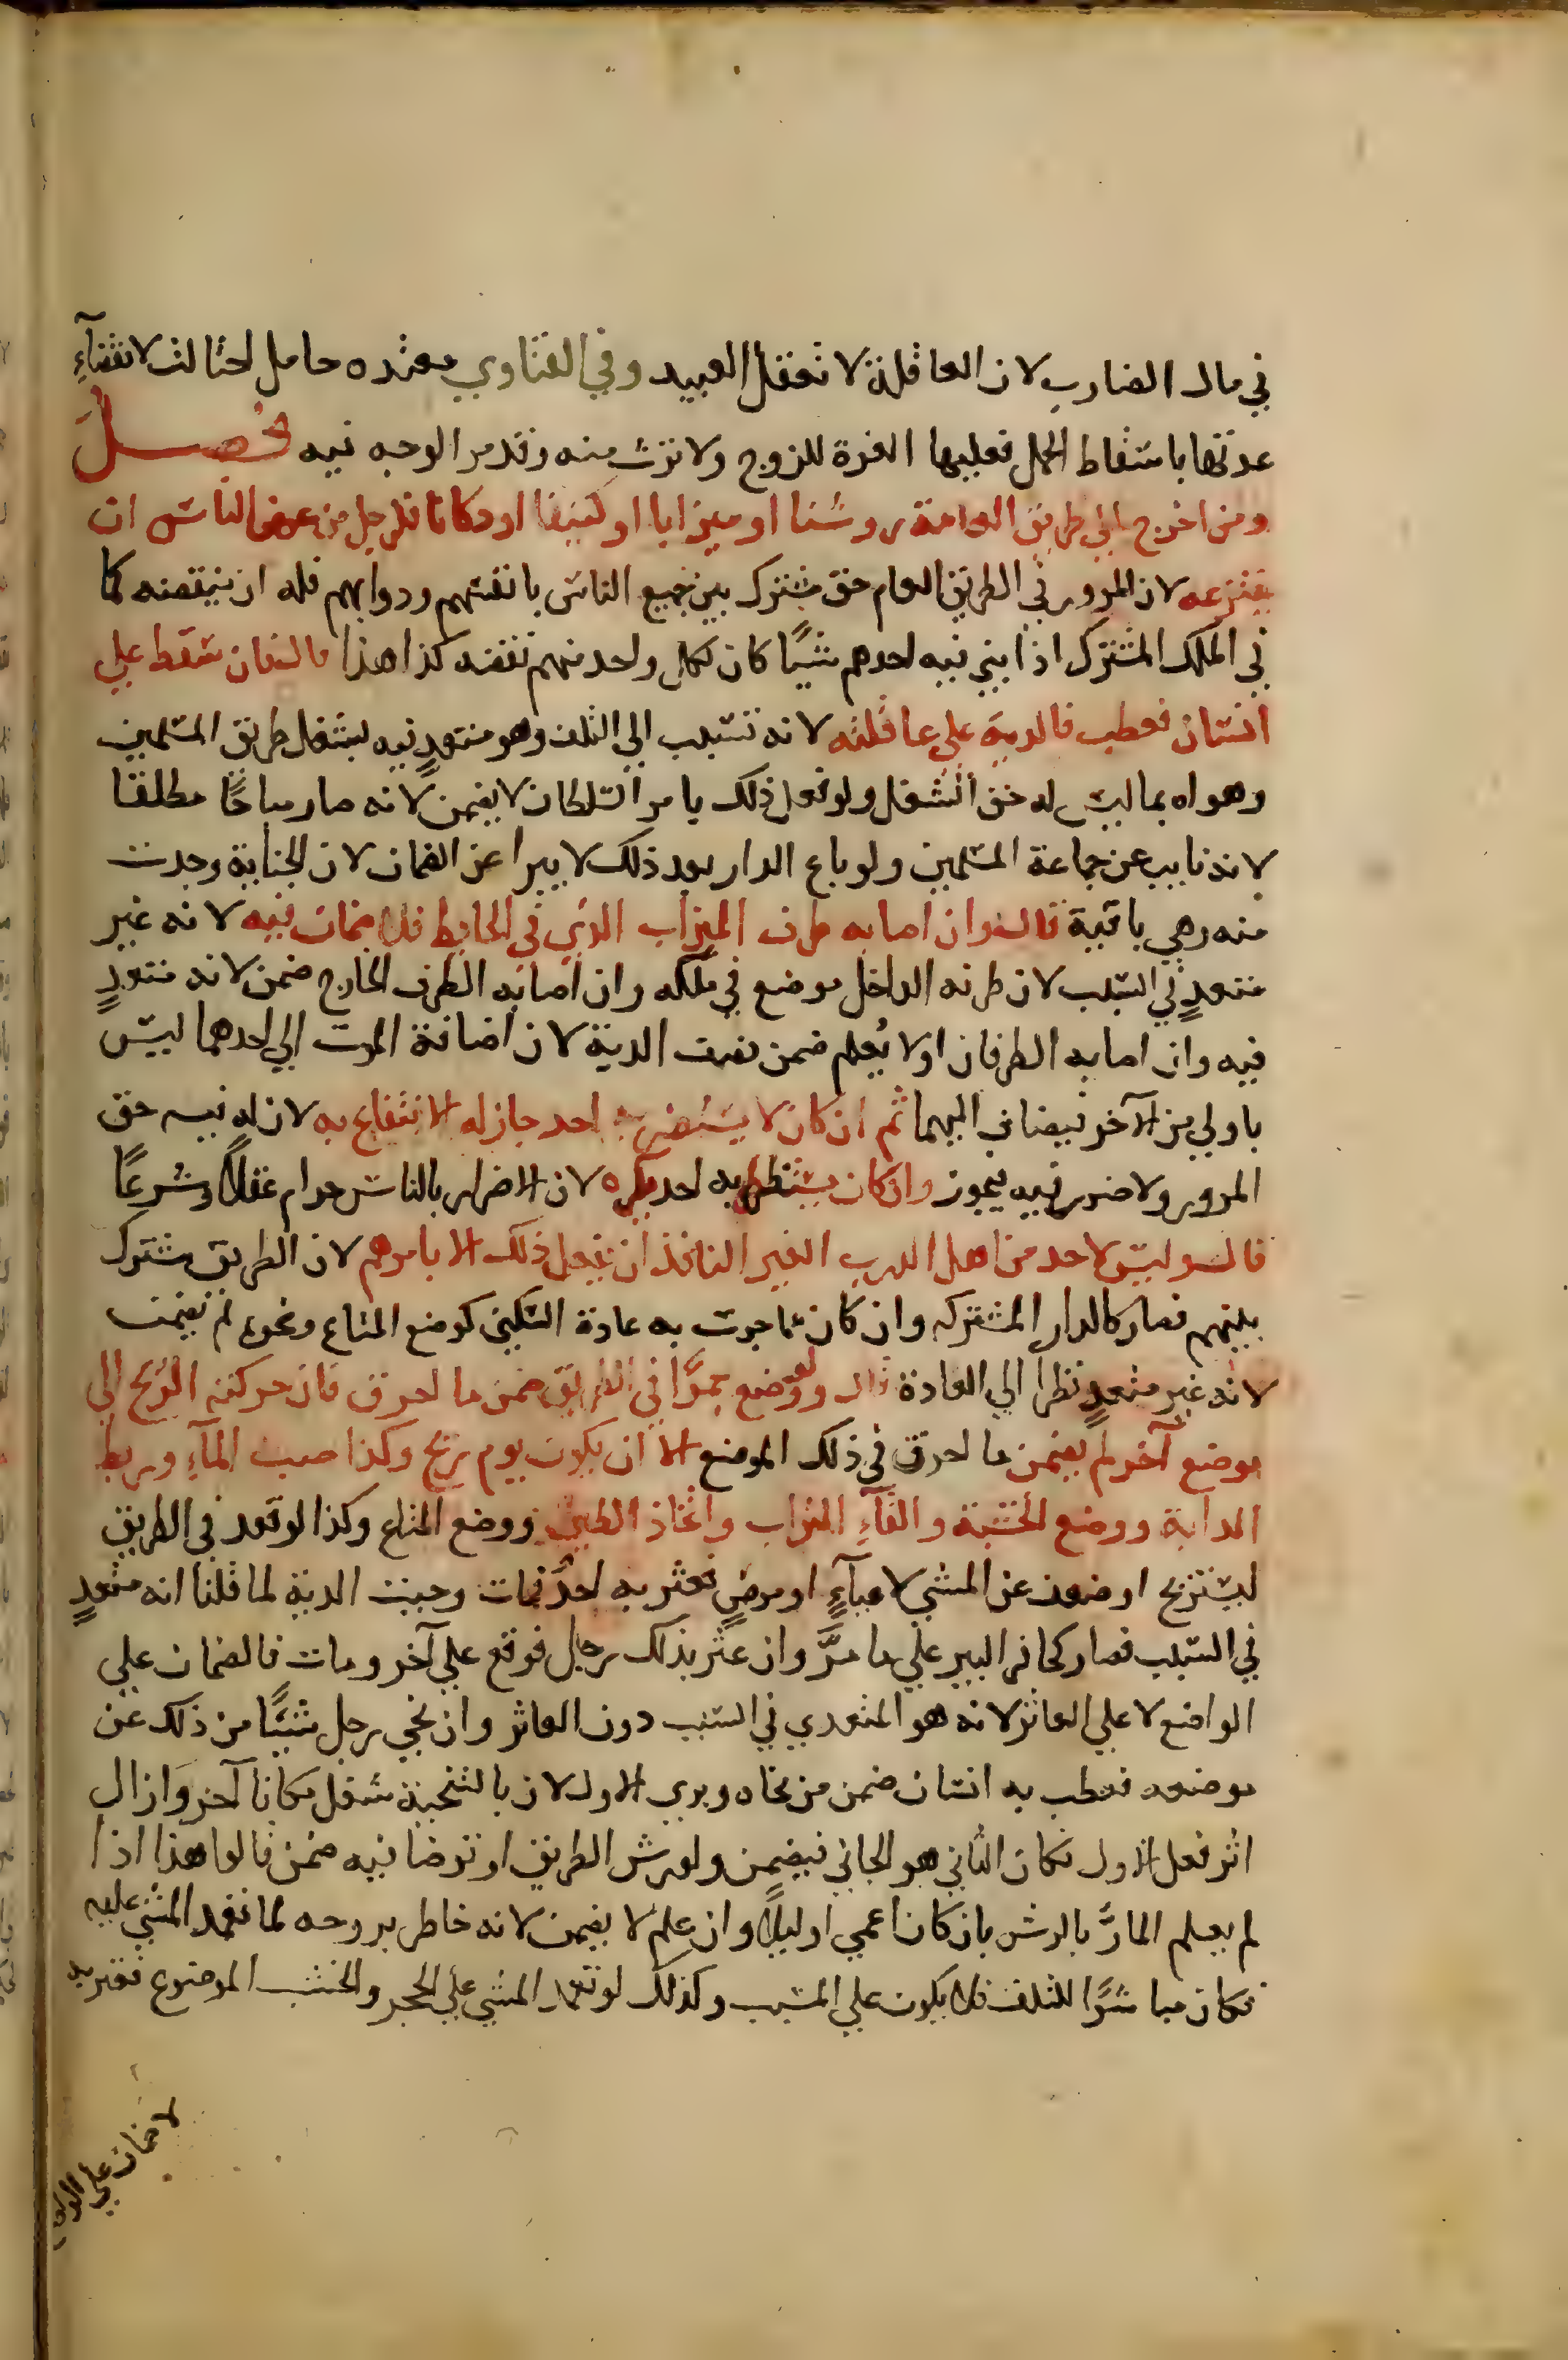 في مال الضارب لان العاقلة لا تعقل العبيد وفي الفتاوي معتده حامل احتالت لانقضآء
عدتها باسقاط الحمل فعليها الغرة للزوج ولا ترث منه وقد مر الوجه فيه فصل
ومن اخرج الي طريق العامة روشنا او ميزابا او كنيفا او دكانا فلرجل من عرض الناس ان
ينتزعه لان المرور في الطريق العام حق مشترك بين جميع الناس بانفسهم ودوابهم فله ان ينقضه كما
في الملك المشترك اذا بني فيه احدهم شيئا كان لكل واحد منهم نقضه كذا هذا قال فان سقط علي
انسان فعطب فالدية علي عاقلته لانه تسبب الي التلف وهو متعدٍ فيه بشغل طريق المسلمين
وهواه بما ليس له حق الشغل ولو فعل ذلك بامر السلطان لا يضمن لانه صار مباحًا مطلقا
لانه نايب عن جماعة المسلمين ولو باع الدار بعد ذلك لا يبرا عن الضمان لان الجناية وجدت
منه وهي باقية قال وان اصابه طرف الميزاب الذي في الحايط فلا ضمان فيه لانه غير
متعدٍ في السبب لان طرفه الداخل موضوع في ملكه وان اصابه الطرف الخارج ضمن لانه متعدٍ
فيه وان اصابه الطرفان او لا يُعلم ضمن نصف الدية لان اضافة الموت الي احدهما ليس
باولي من الآخر فيضاف اليهما ثم ان كان لا يستضر به احد جاز له الانتفاع به لان له فيه حق
المرور ولا ضرر فيه يجوز وان كان يستضر به احد يكره لان الاضرار بالناس حرام عقلًا وشرعًا
قال وليس لاحد من اهل الدرب الغير النافذ ان يفعل ذلك الا بامرهم لان الطريق مشترك
بينهم فصار كالدار المشتركه وان كان مما جرت به عادة السكني كوضع المتاع ونحوه لم يضمن
لانه غير متعدٍ نظرا الي العادة قال ولو وضع جمرًا في الطريق ضمن ما احرق فان حركته الريح الي
موضع آخر لم يضمن ما احرق في ذلك الموضع الا ان يكون يوم ريح وكذا صب المآء وربط
الدابة ووضع الخشبة والقآء التراب واتخاذ الطين ووضع المتاع وكذا لو قعد في الطريق
ليستريح او ضعف عن المشي لاعيآءٍ او مرضٍ فعثر به احدٌ فمات وجبت الدية لما قلنا انه متعدٍ
في السبب فصار كحافر البير علي ما مرَّ وان عثر بذلك رجل فوقع علي آخر ومات فالضمان علي
الواضع لا علي العاثر لانه هو المتعدي في السبب دون العاثر وان نحي رجل شيئًا من ذلك عن
موضعه فعطب به انسان ضمن من نحاه وبري الاول لان بالتنحية شغل مكانا آخر وَازال
اثر فعل الاول فكان الثاني هو الجاني فيضمن ولو رش الطريق او توضا فيه ضمن قالوا هذا اذا
لم يعلم المارُّ بالرش بان كان اعمي او ليلًا وان علم لا يضمن لانه خاطر بروحه لما تعمد المشي عليه
فكان مباشرًا للتلف فلا يكون علي المسبب وكذلك لو تعمد المشي علي الحجر والخشب الموضوع فعثر به
لا ضمان علي